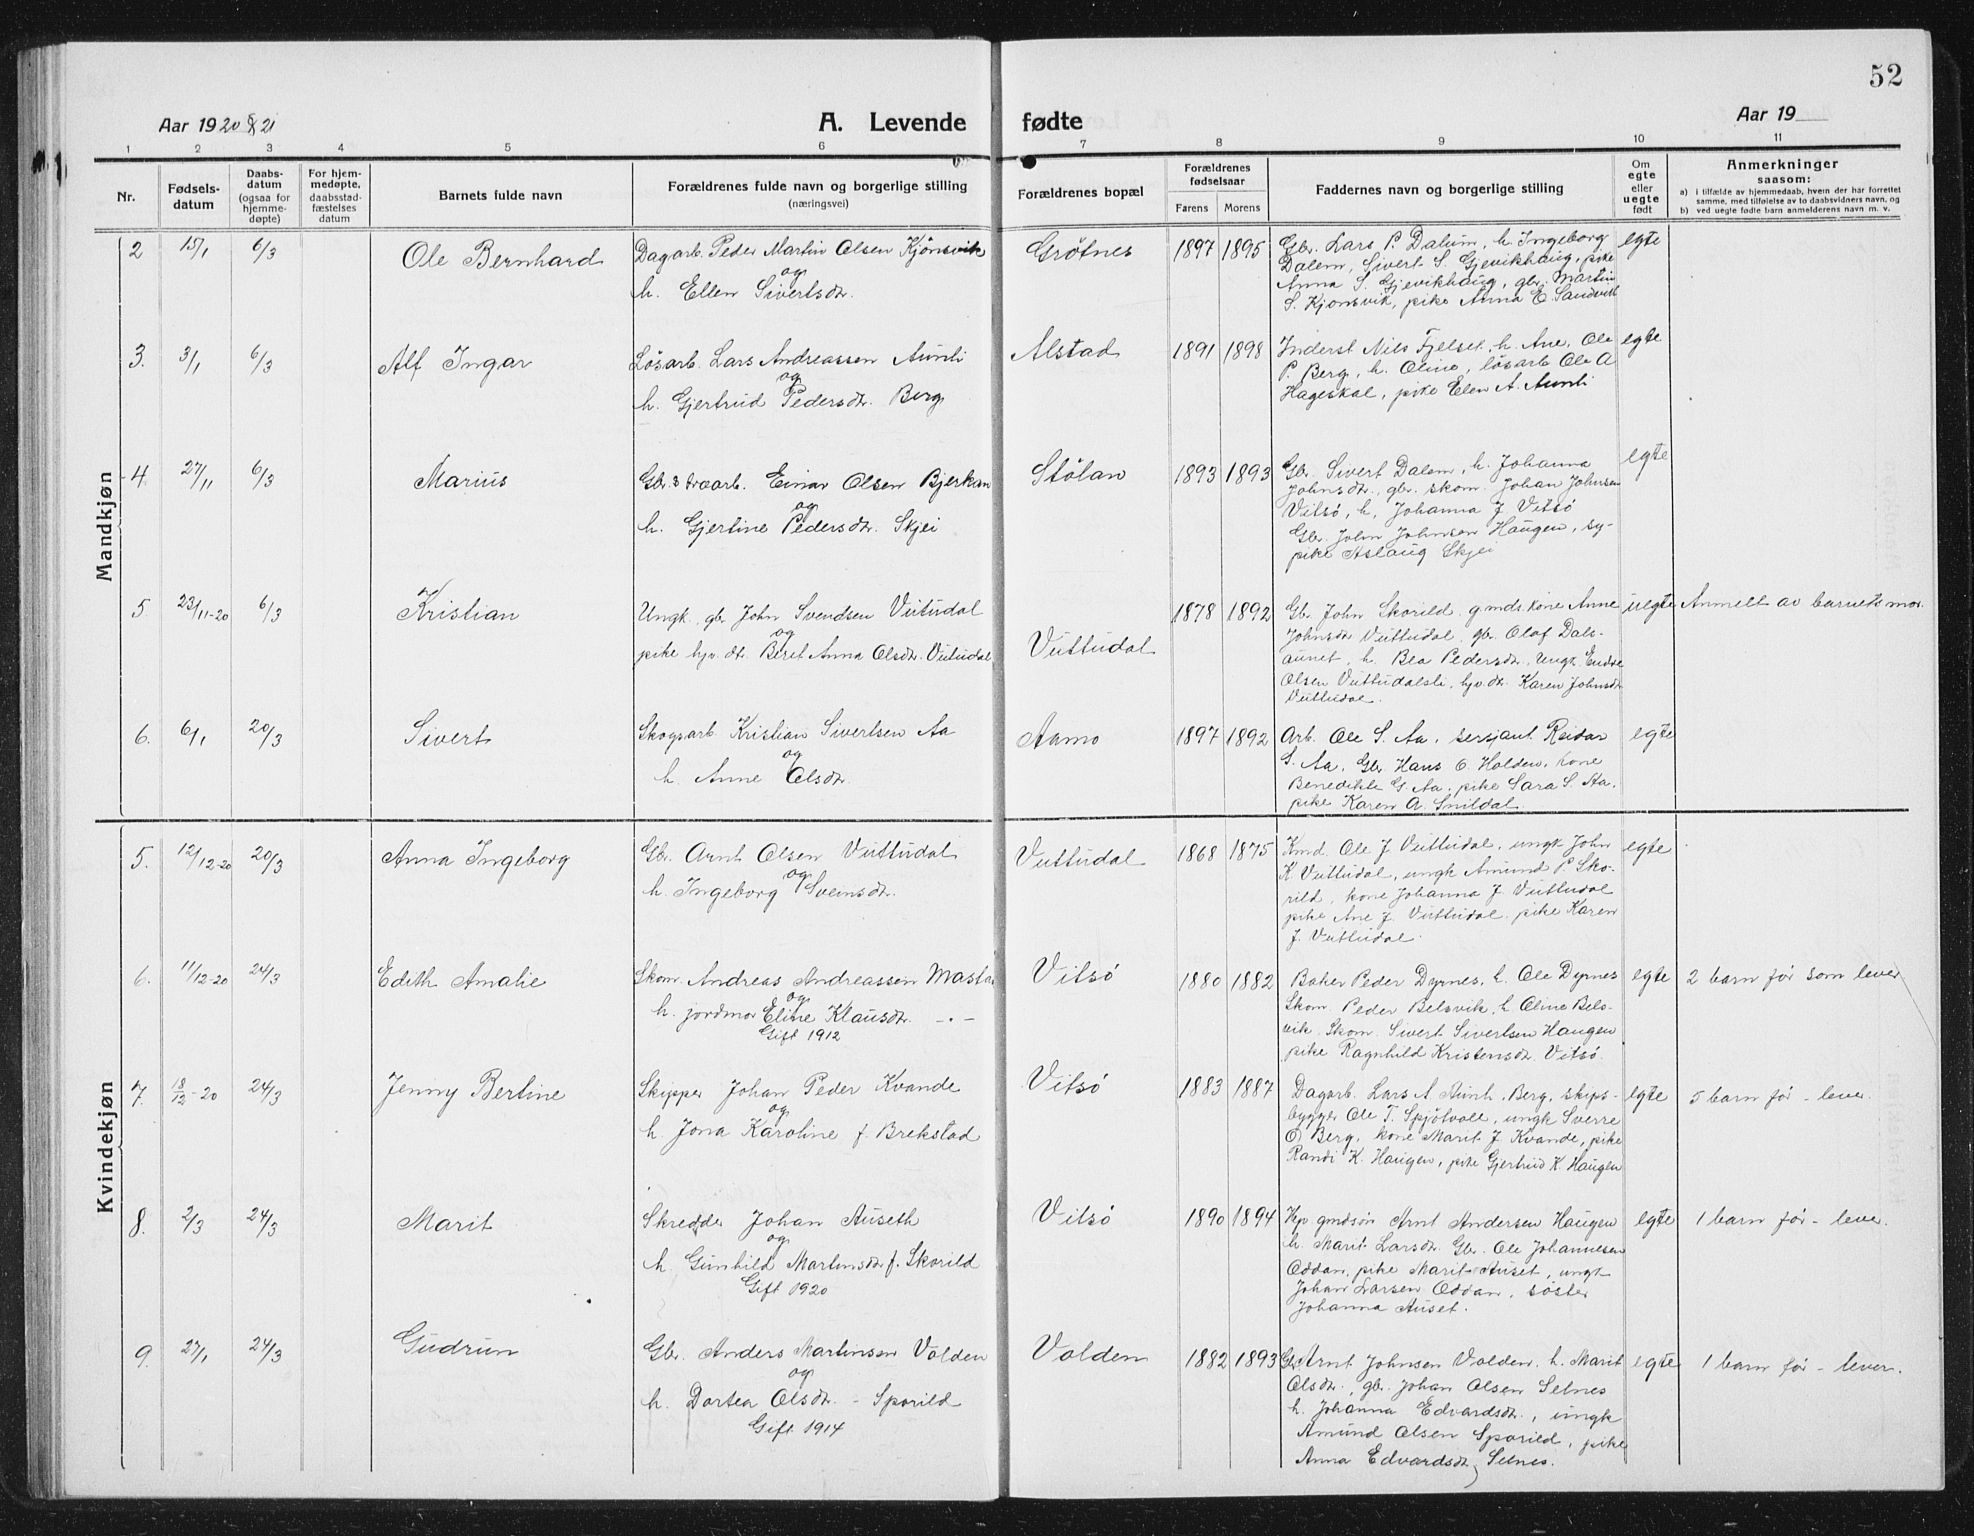 52
Aar 1920 & 21
A. Levende fødte
Aar 19
1 2 3 4 5 6 7 8 9 10 11
Nr.
Fødsels-
datum
Daabs-
datum
(ogsaa for
hjemme-
døpte)
For hjem-
medøpte,
daabsstad-
fæstelses
datum
Barnets fulde navn
Forældrenes fulde navn og borgerlige stilling
(næringsvei)
Forældrenes bopæl
Forældrenes
fødselsaar
Farens Morens
Faddernes navn og borgerlige stilling
Om
egte
eller
uegte
født
Anmerkninger
saasom:
a) i tilfælde av hjemmedaab, hvem der har forrettet
samme, med tilføielse av to daabsvidners navn, og
b) ved uegte fødte barn anmelderens navn m. v.
Mandkjøn
2 15/1 6/3 Ole Bernhard
Dagarb. Peder Martin Olsen Kjönsvik
og
h. Ellen Sivertsdr.
Grötnes 1897 1895
Gbr. Lars P. Dalum, h. Ingeborg
Dalem, Sivert S. Gjevikhaug, pike
Anna S. Gjevikhaug, gbr. Martin
S. Kjonsvik, pike Anna E. Sandvik
egte
3. 3/1 6/3 Alf Ingar
Lösarb. Lars Andreassen Aunli
og
h. Gjertrud Pedersdr. Berg
Alstad 1891 1898
Inderst Nils Fjelset, h. Ane, Ole
P. Berg, h. Oline, lösarb Ole A
Hageskal, pike Elen A. Aunli
egte
4 27/11 6/3 Marius
Gbr. & træarb. Einar Olsen Bjerkan
og
h. Gjertine Pedersdr. Skjei
Stölan 1893 1893
Gbr. Sivert Dalem, h. Johanna
Johnsdr., gbr. skom. Johan Johnsen
Vitsö, h. Johanna J Vitsö
Gbr. John Johnsen Haugen, sy-
pike Aslaug Skjei
egte
5 23/11-20 6/3 Kristian
Ungk. gbr John Svendsen Vutudal
og
pike hjv. dt. Beret Anna Olsdr. Vutudal
Vuttudal 1878 1892
Gbr John Skorild, gmds kone Anne
Johnsdr Vuttudal, gbr. Olaf Dals-
aunet, h. Bea Pedersdr, Ungk. Endre
Olsen Vuttudalsli, hjv. dr. Karen Johnsdr
Vuttudal.
uegte Anmelt av barnets mor.
6. 6/1 20/3 Sivert
Skogsarb Kristian Sivertsen Aa
og
h. Anne Olsdr.
Aamo 1897 1892
Arb. Ole S. Aa, sersjant Reidar
S. Aa, Gbr Hans O. Holden, kone
Benedikte G Aa, pike Sara S. Aa,
pike Karen A. Snildal.
egte
Kvindekjøn
5. 12/12-20 20/3 Anna Ingeborg
Gbr. Arnt Olsen Vuttudal
og
h. Ingeborg Sveinsdr.
Vuttudal 1868 1875
Kmd. Ole J Vuttudal, ungk John
K Vuttudal, ungk Amund P. Sko-
rild, kone Johanna J Vuttudal
pike Ane J. Vuttudal, pike Karen
J. Vuttudal.
egte
6. 11/12-20 24/3 Edith Amalie
Skom. Andreas Andreassen Mastad
og
h. jordmor Eline Klausdr. -"-
Gift 1912
Vitsö 1880 1882
Baker Peder Dyrnes, h. Ole Dyrnes
Skom. Peder Belsvik, h Oline Bels-
vik. Skom. Sivert Sivertsen Haugen
pike Ragnhild Kristensdr. Vitsö.
egte 2 barn før som lever
7. 18/12-20 24/3 Jenny Bertine
Skipper Johan Peder Kvande
og
h. Jona Karoline f. Brekstad
Vitsö 1883 1887
Dagarb. Lars A. Aunli, Berg, skips-
bygger Ole T. Spjötvoll, ungk Sverre
O Berg, kone Marit J Kvande, pike
Randi K. Haugen, pike Gjertrud K. Haugen
egte 5 barn før - lever.
8. 2/3 24/3 Marit
Skredder Johan Auseth
og
h. Gunhild Martinsdr f. Skorild
Gift 1920
Vitsö 1890 1894
Kp gmdsön Arnt Andersen Haugen
h. Marit Larsdr. Gbr. Ole Johannesen
Oddan, pike Marit Auset, ungk
Johan Larsen Oddan, söster
Johanna Auset.
egte 1 barn før - lever.
9. 27/1 24/3 Gudrun
Gbr. Anders Martinsen Volden
og
h. Dortea Olsdr. - Sporild
Gift 1914
Volden 1882 1893
Gbr Arnt Johnsen Volden, h. Marit
Olsdr., gbr. Johan Olsen Selnes
h. Johanna Edvardsdr., ungk
Amund Olsen Sporild, pike
Anna Edvardsdr, Selnes.
egte 1 barn før - lever.